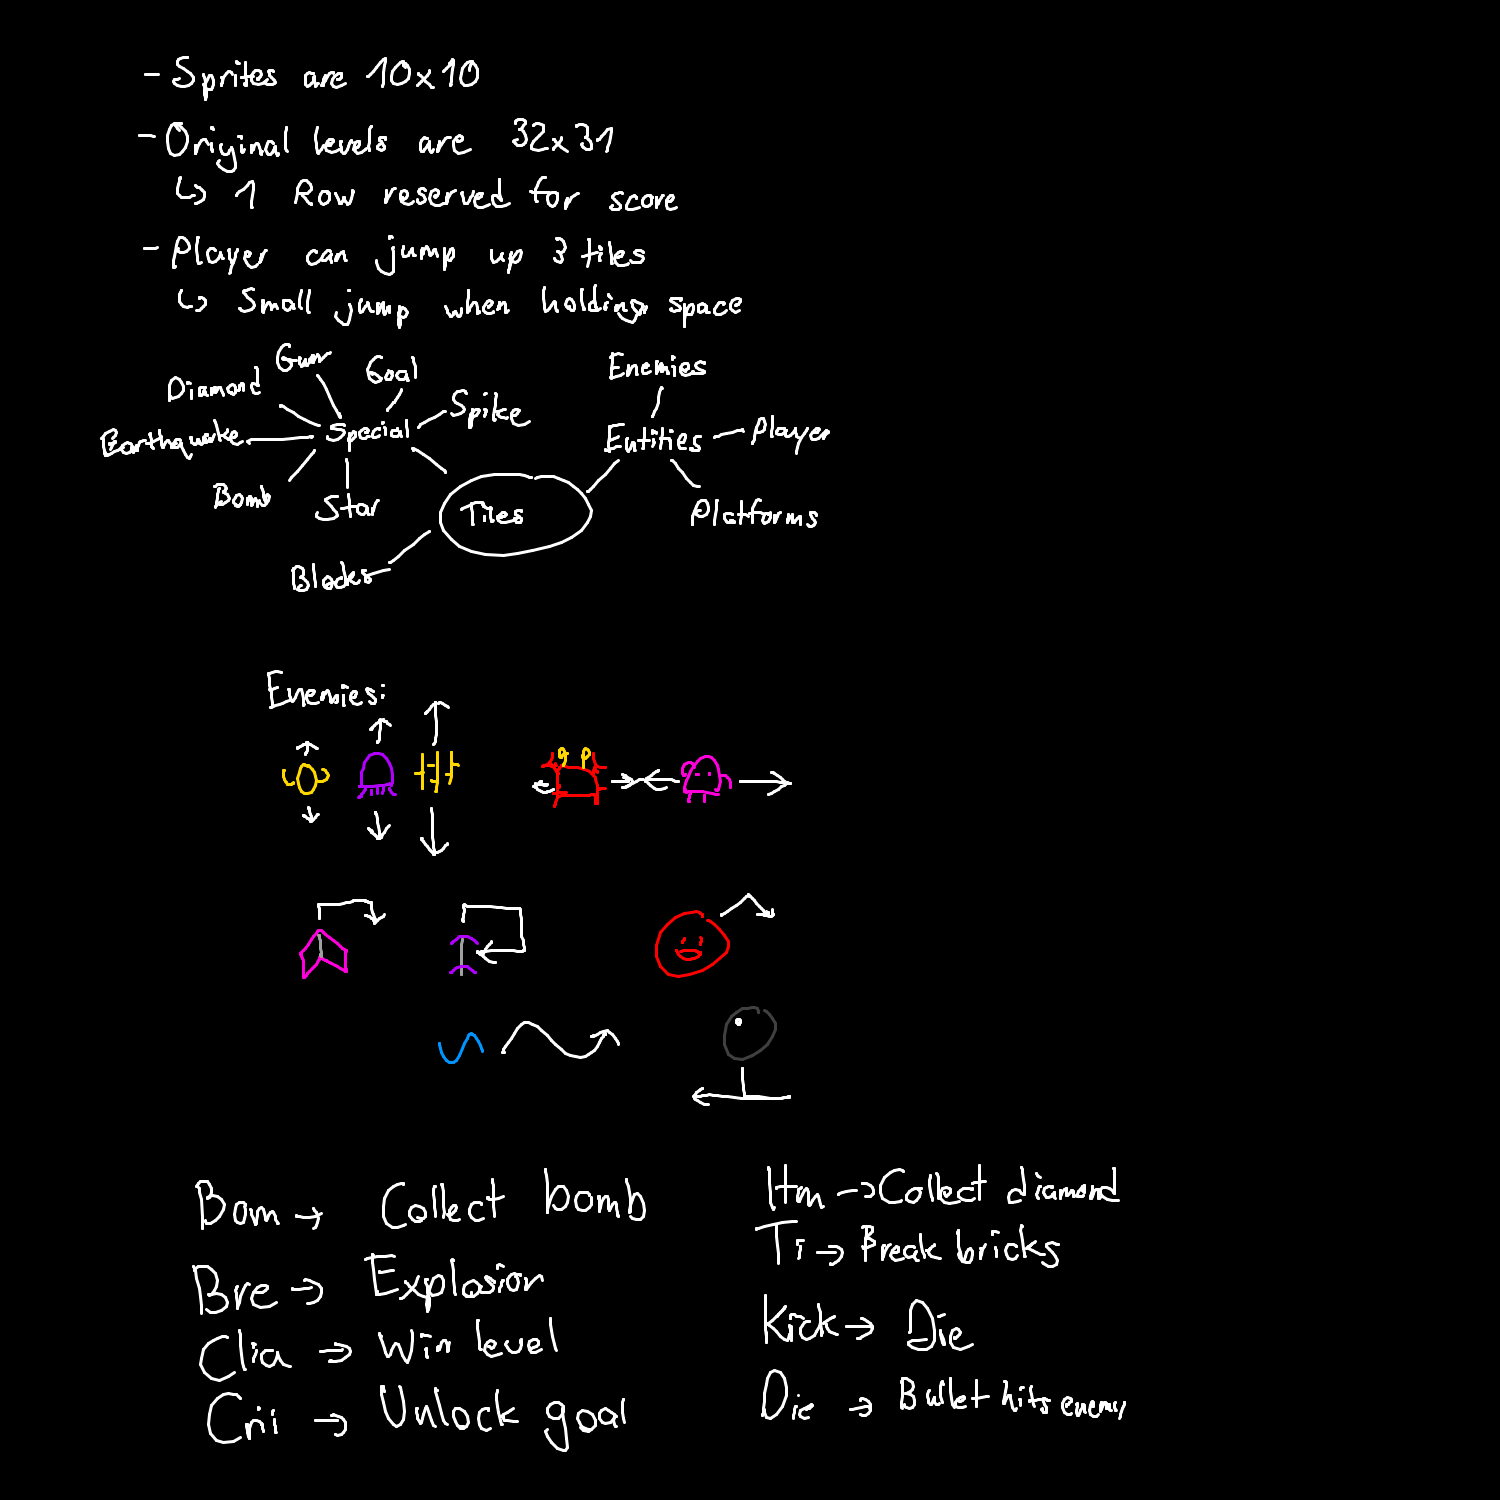 - Sprites are 10x10
- Original levels are 32x31
↳ 1 Row reserved for score
- Player can jump up 3 tiles
↳ Small jump when holding space
Gun
Goal
Diamond
Spike
Earthquake
Special
Bomb
Star
Enemies
Entities
Player
Platforms
Tiles
Blocks
Enemies:
Bom → Collect bomb
Bre → Explosion
Clia → Win level
Cri → Unlock goal
Itm → Collect diamond
Ti → Break bricks
Kick → Die
Die → Bullet hits enemy